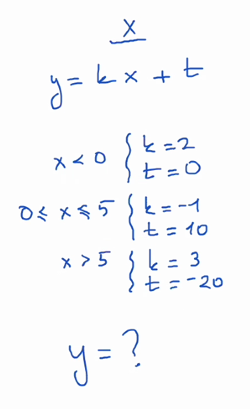 x
y = kx + t
x < 0 { k = 2
t = 0
0 ≤ x ≤ 5 { k = -1
t = 10
x > 5 { k = 3
t = -20
y = ?